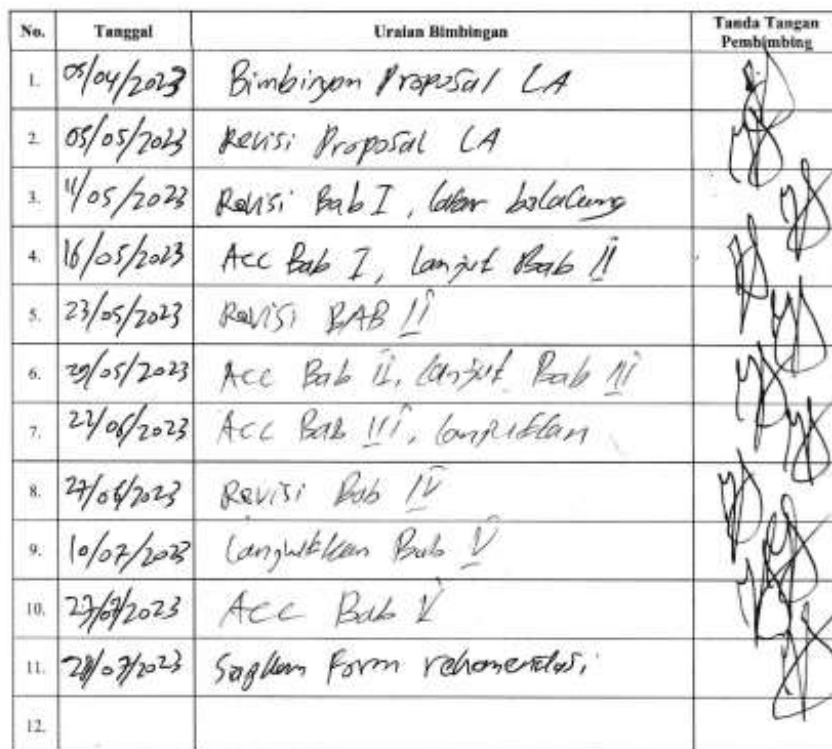 No. Tanggal Uraian Bimbingan Tanda Tangan
Pembimbing
1. 05/04/2023 Bimbingan Proposal LA
2. 05/05/2023 Revisi Proposal LA
3. 11/05/2023 Revisi Bab I, latar belakang
4. 16/05/2023 Acc Bab I, lanjut Bab II
5. 23/05/2023 Revisi BAB II
6. 29/05/2023 Acc Bab II, lanjut Bab III
7. 22/06/2023 Acc Bab III, lanjutkan
8. 27/06/2023 Revisi Bab IV
9. 10/07/2023 Lanjutkan Bab V
10. 27/07/2023 Acc Bab V
11. 28/07/2023 Form rekomendasi
12.